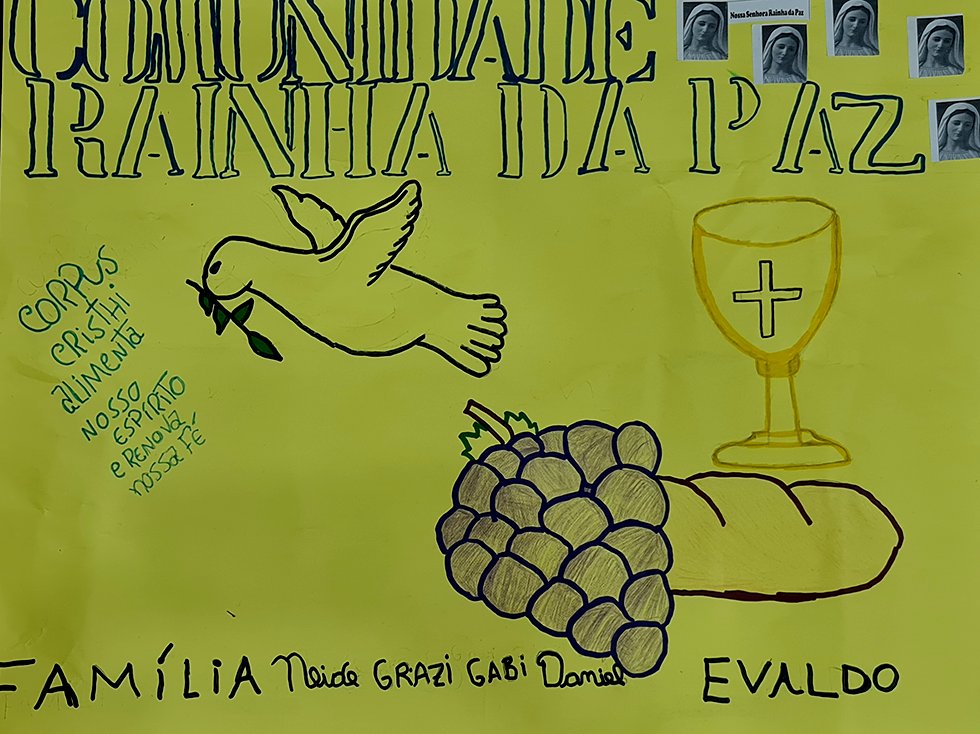 COMUNIDADE
Nossa Senhora Rainha da Paz
RAINHA DA PAZ
CORPUS
CRISTHI
alimenta
NOSSO
ESPÍRITO
e RENOVA
nossa FÉ
FAMÍLIA Neide GRAZI GABI Daniel EVALDO